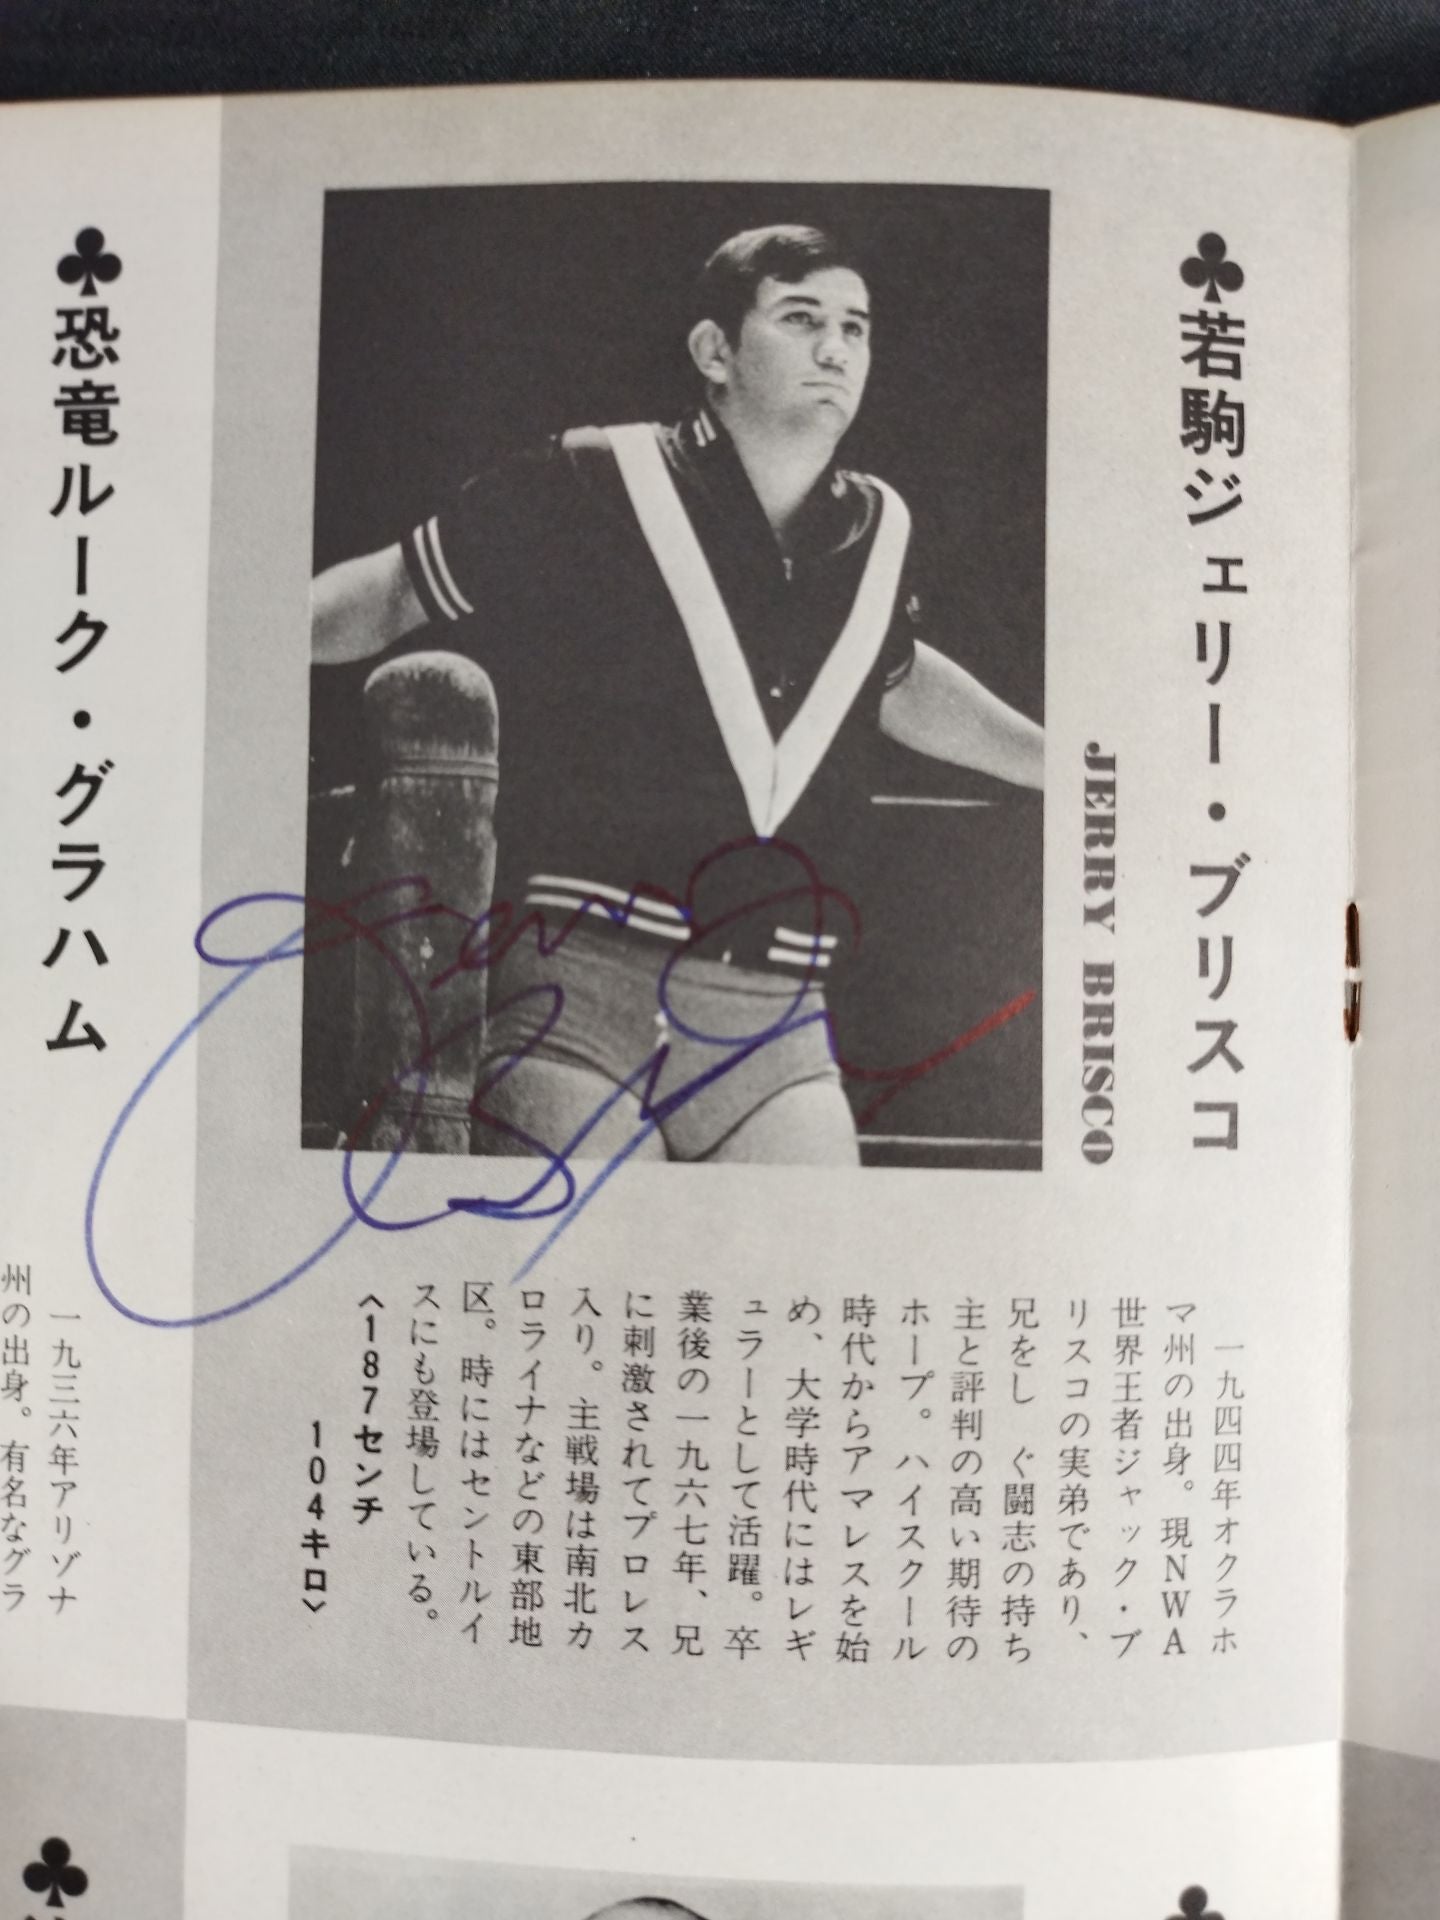 ♣若駒ジェリー・ブリスコ
JERRY BRISCO
一九四四年オクラホ
マ州の出身。現NWA
世界王者ジャック・ブ
リスコの実弟であり、
兄をし ぐ闘志の持ち
主と評判の高い期待の
ホープ。ハイスクール
時代からアマレスを始
め、大学時代にはレギ
ュラーとして活躍。卒
業後の一九六七年、兄
に刺激されてプロレス
入り。主戦場は南北カ
ロライナなどの東部地
区。時にはセントルイ
スにも登場している。
〈187センチ
104キロ〉
Jerry Brisco
♣恐竜ルーク・グラハム
一九三六年アリゾナ
州の出身。有名なグラ